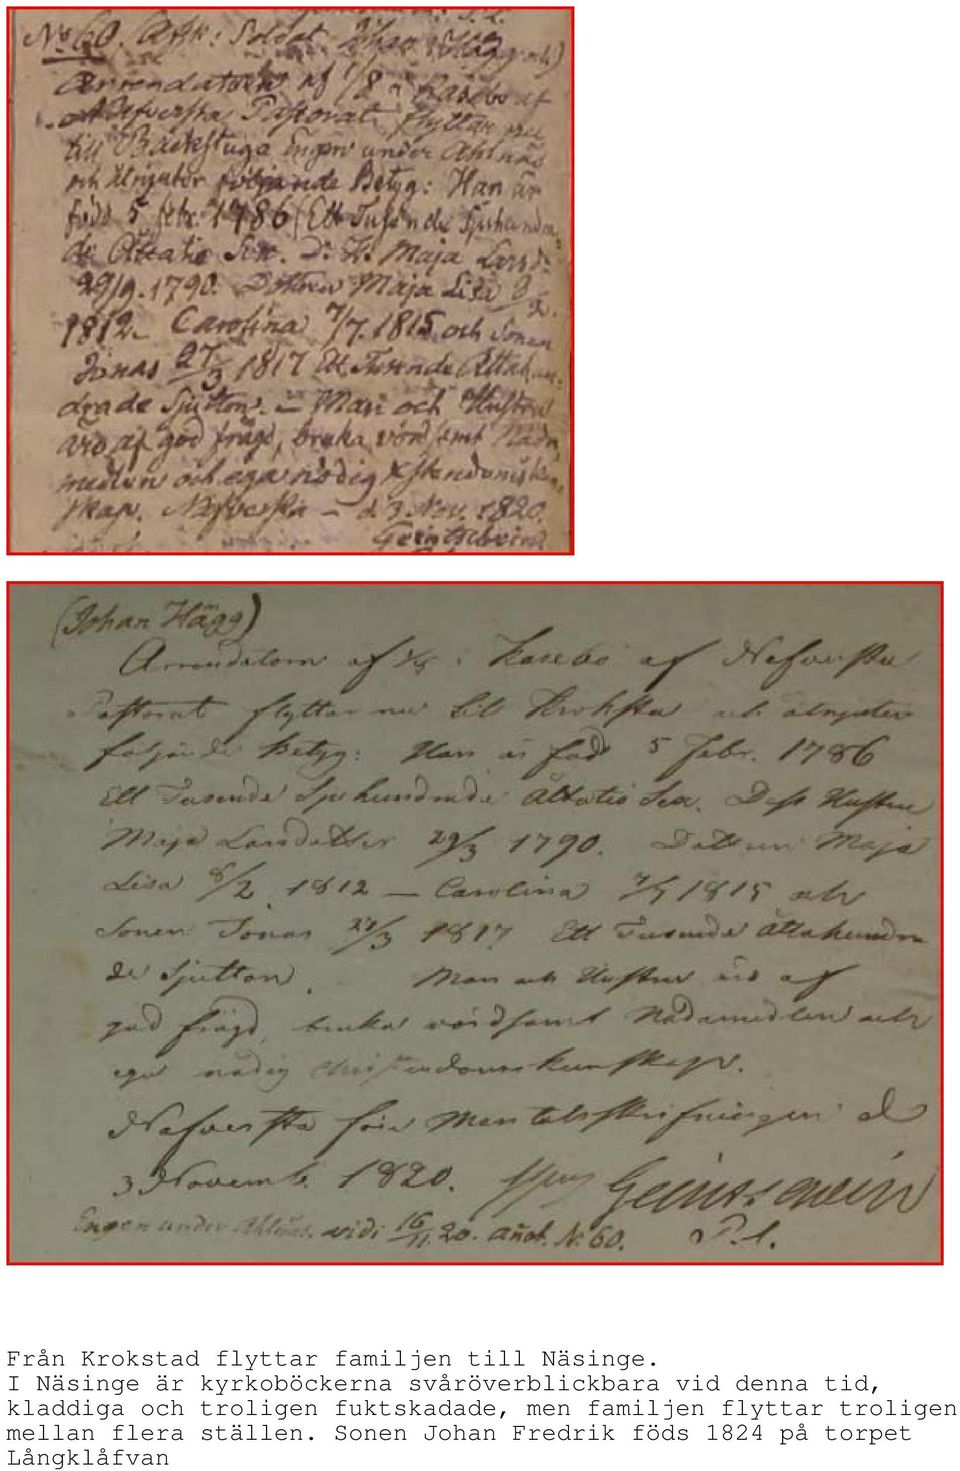 No 60. Afsk: Soldat Johan Hägg
Arrendatorn af 1/8 i Kasebo af
Nafversta Pastorat flyttar nu
till Backstuga Engen under Ahlnäs
och åtnjuter följande Betyg: Han är
föds 5 febr. 1786 (Ett Tusende Sjuhundra-
de Åttatio Sex. D: H: Maja Larsd:
29/9. 1790. Dottren Maja Lisa 8/2.
1812. Carolina 7/7. 1815 och Sonen
Jonas 27/3 1817 Ett Tusende Åttahun-
drade Sjutton. — Man och Hustru
äro af god frägd, bruka vördsamt Nåde-
medlen och ega nödig Xstendomskun-
skap. Nafversta — d. 3 Nov. 1820.
(Johan Hägg)
Arrendatorn af 1/8 i Kasebo af Nafversta
Pastorat flyttar nu till Krokstad och åtnjuter
följande Betyg: Han är född 5 febr. 1786
Ett Tusende Sjuhundrade Åttatio Sex. Dess Hustru
Maja 29/3 1790. Dottren Maja
Lisa 8/2. 1812 — Carolina 1815 och
Sonen Jonas 27/3 1817. Ett Tusende Åttahundra
de Sjutton. Man och Hustru äro af
god frägd, bruka vördsamt Nådemedlen och
ega nödig Christendomskunskap.
Nafversta för Mantalsskrifningen d
3 Novemb. 1820.
Engen under Ahlnäs. vidi 16/11. 20. añot. No 60. P.l.
Från Krokstad flyttar familjen till Näsinge.
I Näsinge är kyrkoböckerna svåröverblickbara vid denna tid,
kladdiga och troligen fuktskadade, men familjen flyttar troligen
mellan flera ställen. Sonen Johan Fredrik föds 1824 på torpet
Långklåfvan